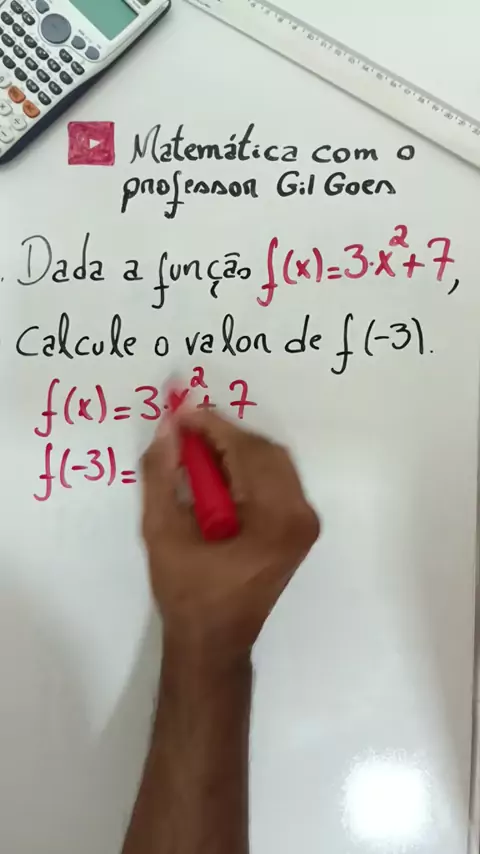 Matemática com o
professor Gil Goes
Dada a função f(x)=3·x²+7,
Calcule o valor de f(-3).
f(x)=3·x²+7
f(-3)=